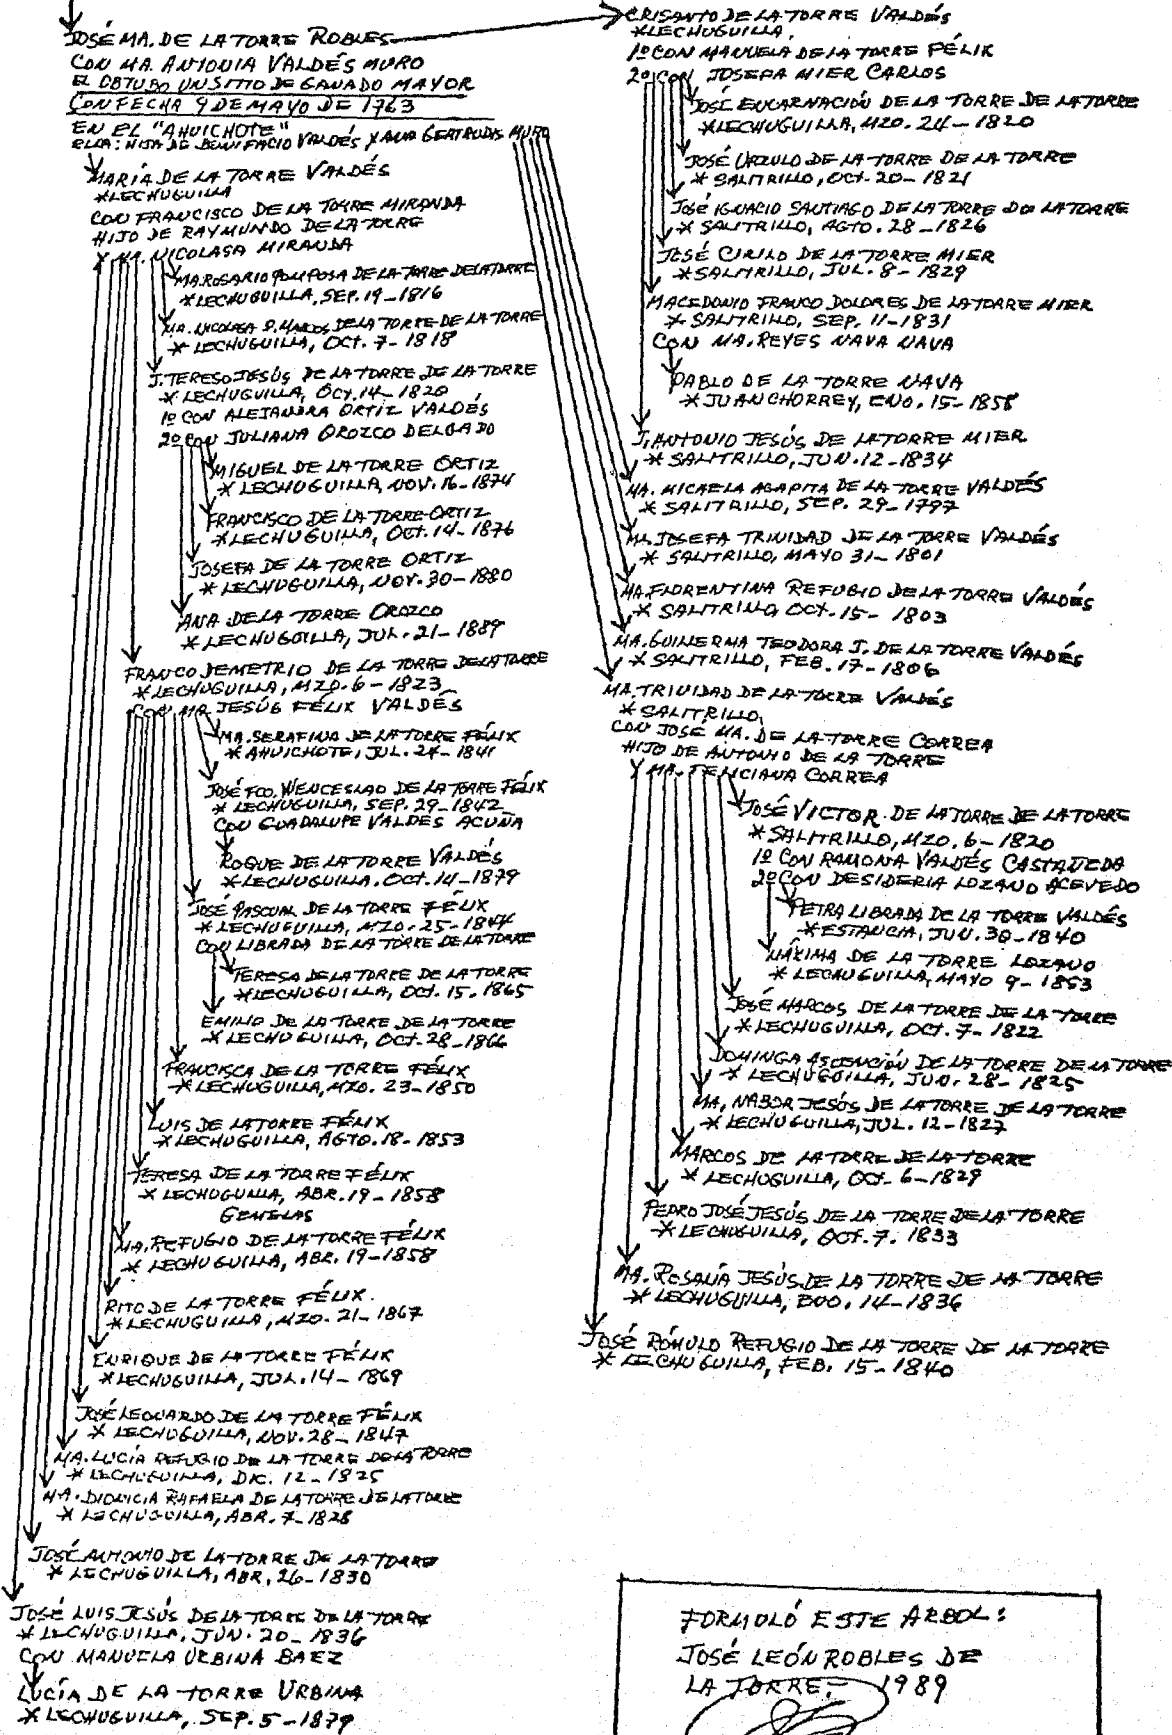 JOSÉ MA. DE LA TORRE ROBLES
CON MA. ANTONIA VALDÉS MURO
EL OBTUBO UN SITIO DE GANADO MAYOR
CON FECHA 9 DE MAYO DE 1763
EN EL "AHUICHOTE"
ELLA: HIJA DE BONIFACIO VALDÉS Y ANA GERTRUDIS MURO
MARÍA DE LA TORRE VALDÉS
*LECHUGUILLA
CON FRANCISCO DE LA TORRE MIRANDA
HIJO DE RAYMUNDO DE LA TORRE
Y MA. NICOLASA MIRANDA
MA. ROSARIO POMPOSA DE LA TORRE DE LA TORRE
*LECHUGUILLA, SEP. 19-1816
MA. NICOLASA D. MARCOS DE LA TORRE DE LA TORRE
* LECHUGUILLA, OCT. 7-1818
J. TERESO JESÚS DE LA TORRE DE LA TORRE
* LECHUGUILLA, OCT. 14-1820
1º CON ALEJANDRA ORTIZ VALDÉS
2º CON JULIANA OROZCO DELGADO
MIGUEL DE LA TORRE ORTIZ
* LECHUGUILLA, NOV. 16-1874
FRANCISCO DE LA TORRE ORTIZ
*LECHUGUILLA, OCT. 14-1876
JOSEFA DE LA TORRE ORTIZ
* LECHUGUILLA, NOV. 30-1880
ANA DE LA TORRE OROZCO
* LECHUGUILLA, JUL. 21-1889
FRANCO DEMETRIO DE LA TORRE DE LA TORRE
*LECHUGUILLA, MZO. 6-1823
CON MA. JESÚS FÉLIX VALDÉS
MA. SERAFINA DE LA TORRE FÉLIX
* AHUICHOTE, JUL. 24-1841
JOSÉ FCO. WENCESLAO DE LA TORRE FÉLIX
* LECHUGUILLA, SEP. 29-1842
CON GUADALUPE VALDÉS ACUÑA
ROQUE DE LA TORRE VALDÉS
*LECHUGUILLA. OCT. 14-1879
JOSÉ PASCUAL DE LA TORRE FÉLIX
* LECHUGUILLA, MZO. 25-1844
CON LIBRADA DE LA TORRE DE LA TORRE
TERESA DE LA TORRE DE LA TORRE
*LECHUGUILLA, OCT. 15. 1865
EMILIO DE LA TORRE DE LA TORRE
* LECHUGUILLA, OCT. 28-1866
FRANCISCA DE LA TORRE FÉLIX
*LECHUGUILLA, MZO. 23-1850
LUIS DE LA TORRE FÉLIX
*LECHUGUILLA, AGTO. 18-1853
TERESA DE LA TORRE FÉLIX
* LECHUGUILLA, ABR. 19-1858
GEMELAS
MA. REFUGIO DE LA TORRE FÉLIX
* LECHUGUILLA, ABR. 19-1858
RITO DE LA TORRE FÉLIX.
*LECHUGUILLA, MZO. 21-1867
ENRIQUE DE LA TORRE FÉLIX
*LECHUGUILLA, JUL. 14-1869
JOSÉ LEONARDO DE LA TORRE FÉLIX
* LECHUGUILLA, NOV. 28-1847
MA. LUCÍA REFUGIO DE LA TORRE DE LA TORRE
* LECHUGUILLA, DIC. 12-1825
MA. DIONICIA RAFAELA DE LA TORRE DE LA TORRE
* LECHUGUILLA, ABR. 7-1828
JOSÉ ANTONIO DE LA TORRE DE LA TORRE
* LECHUGUILLA, ABR. 26-1830
JOSÉ LUIS JESÚS DE LA TORRE DE LA TORRE
* LECHUGUILLA, JUN. 20-1836
CON MANUELA URBINA BAEZ
LUCÍA DE LA TORRE URBINA
* LECHUGUILLA, SEP. 5-1879
CRISANTO DE LA TORRE VALDÉS
*LECHUGUILLA,
1º CON MANUELA DE LA TORRE FÉLIX
2º CON JOSEFA MIER CARLOS
JOSÉ ENCARNACIÓN DE LA TORRE DE LA TORRE
*LECHUGUILLA, MZO. 24-1820
JOSÉ ÚRZULO DE LA TORRE DE LA TORRE
* SALITRILLO, OCT. 20-1821
JOSÉ IGNACIO SANTIAGO DE LA TORRE DE LA TORRE
* SALITRILLO, AGTO. 28-1826
JOSÉ CIRILO DE LA TORRE MIER
*SALITRILLO, JUL. 8-1829
MACEDONIO FRANCO DOLORES DE LA TORRE MIER
* SALITRILLO, SEP. 11-1831
CON MA. REYES NAVA NAVA
PABLO DE LA TORRE NAVA
* JUANCHORREY, ENO. 15-1858
J. ANTONIO JESÚS DE LA TORRE MIER
* SALITRILLO, JUN. 12-1834
MA. MICAELA AGAPITA DE LA TORRE VALDÉS
* SALITRILLO, SEP. 29-1797
MA. JOSEFA TRINIDAD DE LA TORRE VALDÉS
* SALITRILLO, MAYO 31-1801
MA. FLORENTINA REFUGIO DE LA TORRE VALDÉS
* SALITRILLO, OCT. 15-1803
MA. GUILLERMA TEODORA J. DE LA TORRE VALDÉS
* SALITRILLO, FEB. 17-1806
MA. TRINIDAD DE LA TORRE VALDÉS
* SALITRILLO,
CON JOSÉ MA. DE LA TORRE CORREA
HIJO DE ANTONIO DE LA TORRE
Y MA. FELICIANA CORREA
JOSÉ VICTOR. DE LA TORRE DE LA TORRE
* SALITRILLO, MZO. 6-1820
1º CON RAMONA VALDÉS CASTAÑEDA
2º CON DESIDERIA LOZANO ACEVEDO
PETRA LIBRADA DE LA TORRE VALDÉS
*ESTANCIA, JUN. 30-1840
MÁXIMA DE LA TORRE LOZANO
* LECHUGUILLA, MAYO 9-1853
JOSÉ MARCOS DE LA TORRE DE LA TORRE
* LECHUGUILLA, OCT. 7-1822
DOMINGA ASCENCIÓN DE LA TORRE DE LA TORRE
* LECHUGUILLA, JUN. 28-1825
MA. NABOR JESÚS DE LA TORRE DE LA TORRE
* LECHUGUILLA, JUL. 12-1827
MARCOS DE LA TORRE DE LA TORRE
* LECHUGUILLA, OCT. 6-1829
PEDRO JOSÉ JESÚS DE LA TORRE DE LA TORRE
* LECHUGUILLA, OCT. 7. 1833
MA. ROSALÍA JESÚS DE LA TORRE DE LA TORRE
* LECHUGUILLA, 14-1836
JOSÉ RÓMULO REFUGIO DE LA TORRE DE LA TORRE
* LECHUGUILLA, FEB. 15-1840
FORMULÓ ESTE ARBOL:
JOSÉ LEÓN ROBLES DE
LA TORRE.- 1989